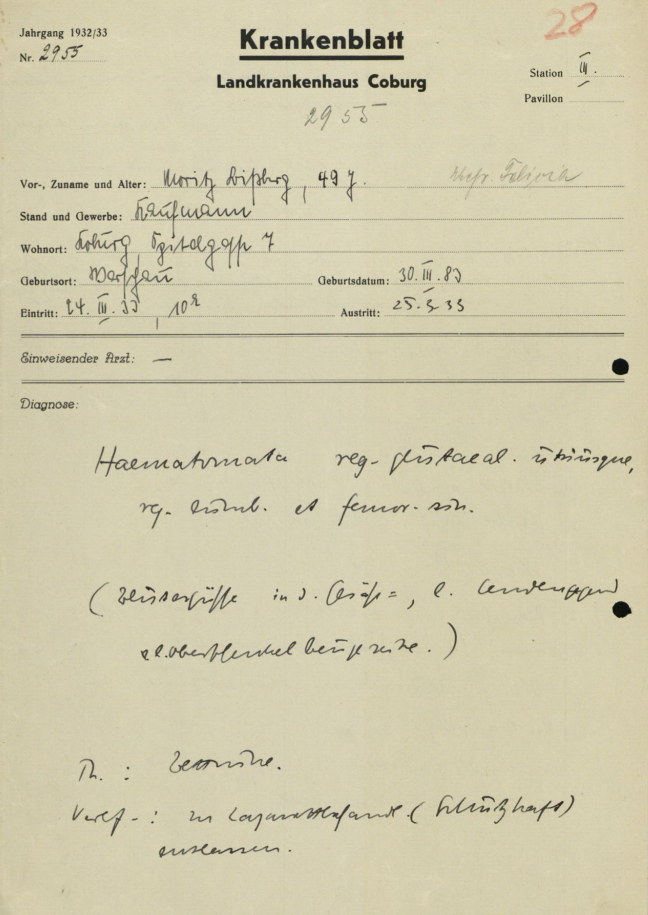 Jahrgang 1932/33
28
Krankenblatt
Nr. 2955
Landkrankenhaus Coburg
Station III.
Pavillon
2955
Vor-, Zuname und Alter: Moritz , 49 J.
Stand und Gewerbe: Kaufmann
Wohnort: Koburg, Spitalgasse 7
Geburtsort: Warschau Geburtsdatum: 30. III. 83
Eintritt: 24. III. 33, 10 Austritt: 25.3.33
Einweisender Arzt: —
Diagnose:
Haematomata reg. glutaeal. utriusque,
reg. lumb. et femor. sin.
(Blutergüsse in d. Gesäß=, l. Lendengegend
Oberschenkel beugeseite.)
Th.: Bettruhe.
Verlf.: (Schutzhaft)
entlassen.